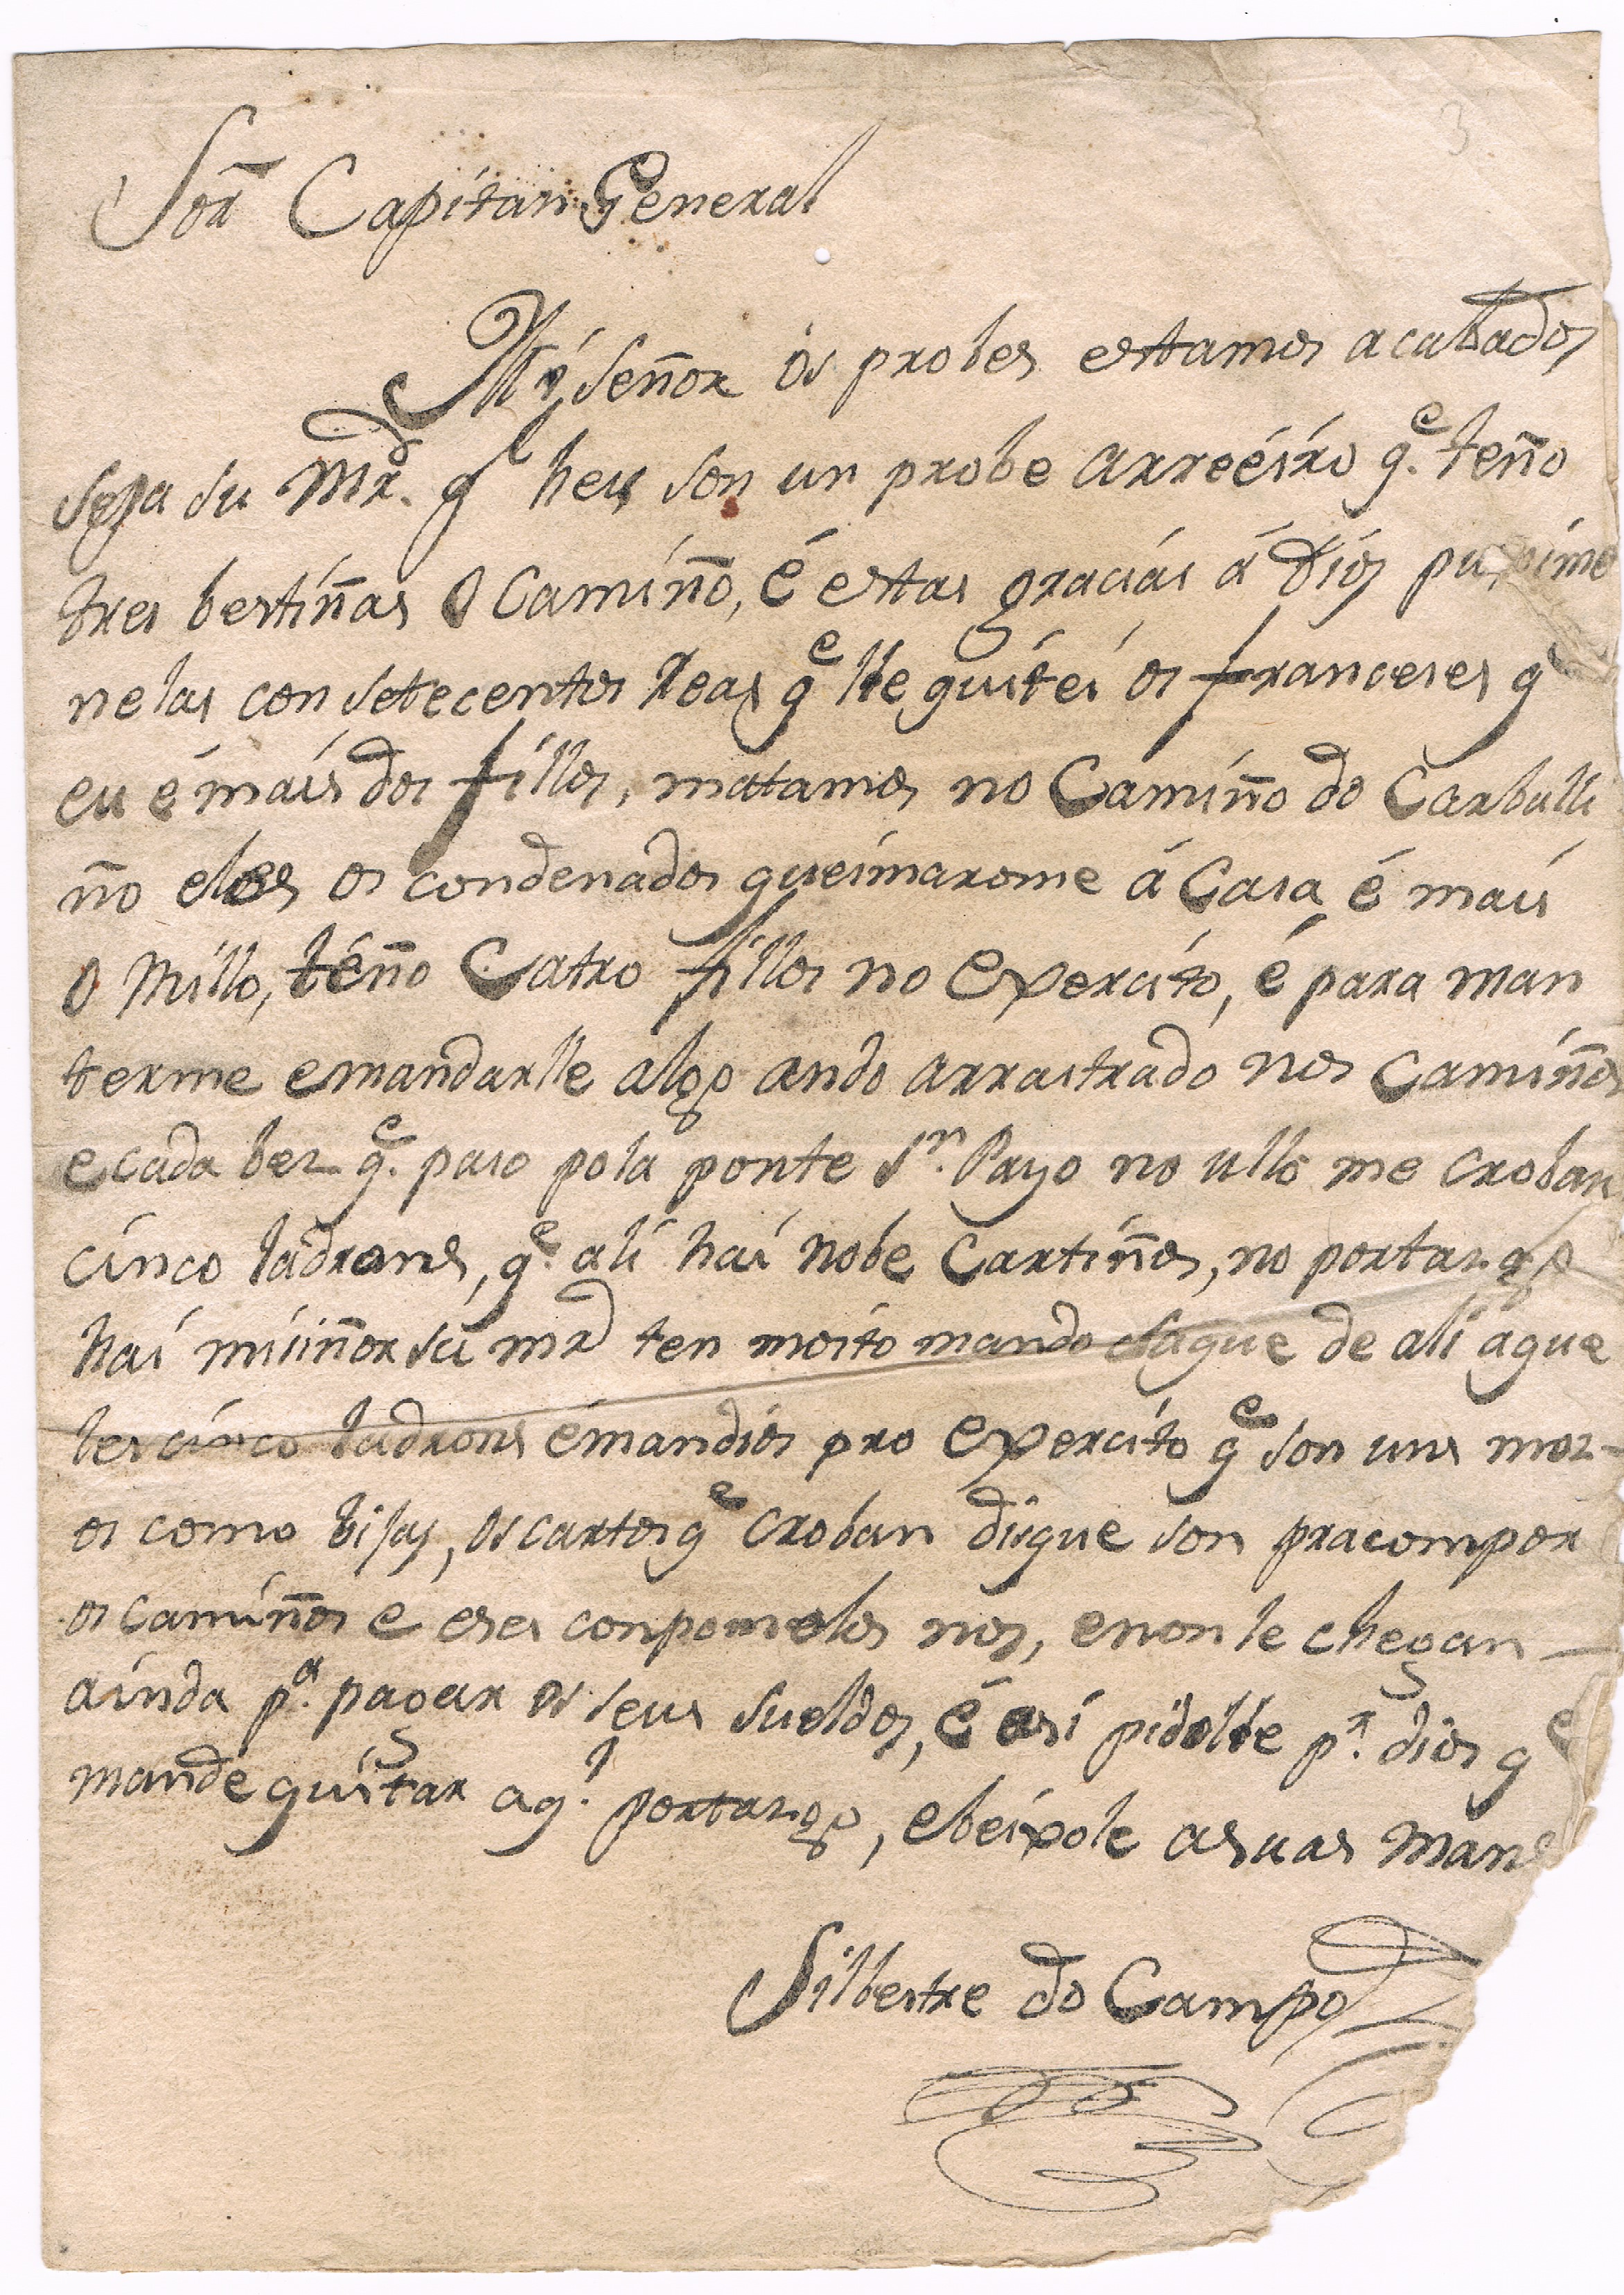 Sor Capitan General
Mi Señor os probes estamos acabados
sepa su Mrd. q heu son un probe arreéiro qe. teño
tres bestiñas O Camiño, é estas gracias á Dios puxime
nelas con setecentos Reas qe lle quitei os franceses qe
eu é mais dos fillos, matamos no Camiño do Carballi
ño eles os condenados queimarome á Casa é mais
O Millo, téño Catro fillos no Exercito, é para man
terme emandarlle algo ando arrastrado nos Camiños
e cada bez qe. paso pola ponte Sn. Payo no ullo me croban
cinco ladrons, qe. ali hai nobe Cartiños, no portazgo
hai misiñor su mrd ten moito mando saque de ali aque
les cinco ladrons émandios pro Exercito qe son uns moz-
os como bisas, os cartos qe croban disque son pra compor
os camiños e eses conpomolos nos, e non le chegan
ainda pa. pagar os seus sueldos, é asi pidolle pr. dios qe
mande quitar aql. portazgo, e beixole as uas mans
Silbestre do Campo